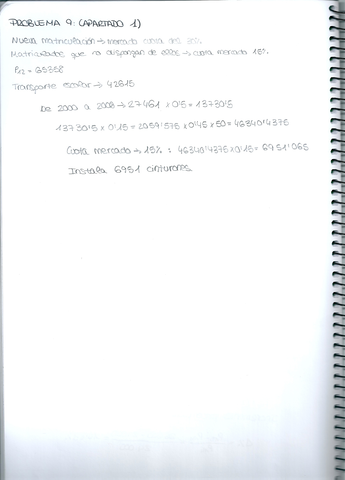 PROBLEMA 9: (APARTADO 1)
Nueva matriculación → mercado cuota del 30%.
Matriculados que no dispongan de ellos → cuota mercado 15%.
P12 = 65358
Transporte escolar → 42615
De 2000 a 2008 → 27461 x 0'5 = 13730'5
13730'5 x 0'15 = 2059'575 x 0'45 x 50 = 46340'4375
Cuota mercado → 15% : 46340'4375 x 0'15 = 6951'065
Instala 6951 cinturones.